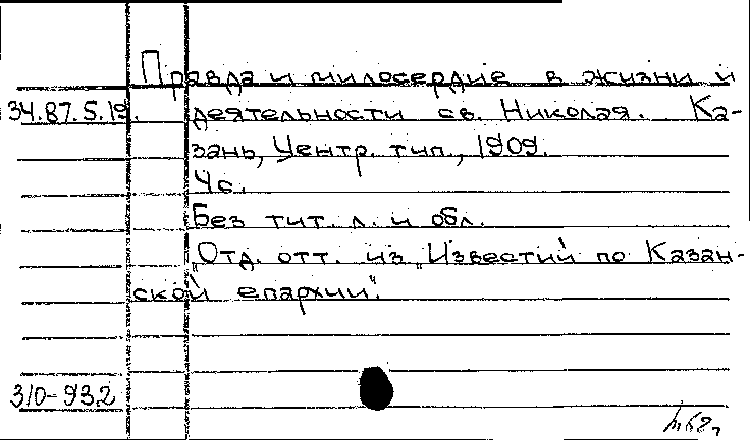 Правда и милосердие в жизни и
34.87.5.19. деятельности св. Николая. Ка-
зань, Центр. тип., 1909.
4с.
Без тит. л. и обл.
„Отд. отт. из „Известий по Казан-
ской епархии".
310-932